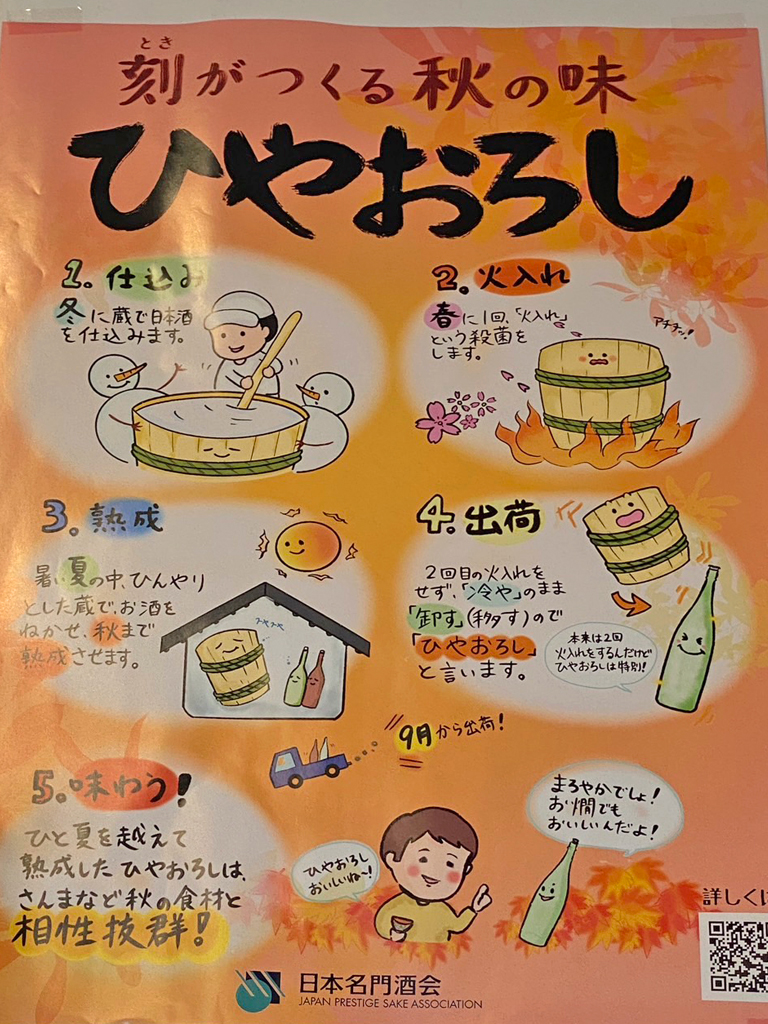 とき
刻がつくる秋の味
ひやおろし
1. 仕込み
冬に蔵で日本酒
を仕込みます。
2. 火入れ
春に1回、「火入れ」
という殺菌を
します。
アチチッ!
3. 熟成
暑い夏の中、ひんやり
とした蔵で、お酒を
ねかせ、秋まで
熟成させます。
4. 出荷
2回目の火入れを
せず、「冷や」のまま
「卸す」(移す)ので
「ひやおろし」
と言います。
本来は2回
火入れをするんだけど
ひやおろしは特別!
9月から出荷!
5. 味わう!
ひと夏を越えて
熟成したひやおろしは、
さんまなど秋の食材と
相性抜群!
ひやおろし
おいしいね〜!
まろやかでしょ!
お燗でも
おいしいんだよ!
詳しくは
日本名門酒会
JAPAN PRESTIGE SAKE ASSOCIATION